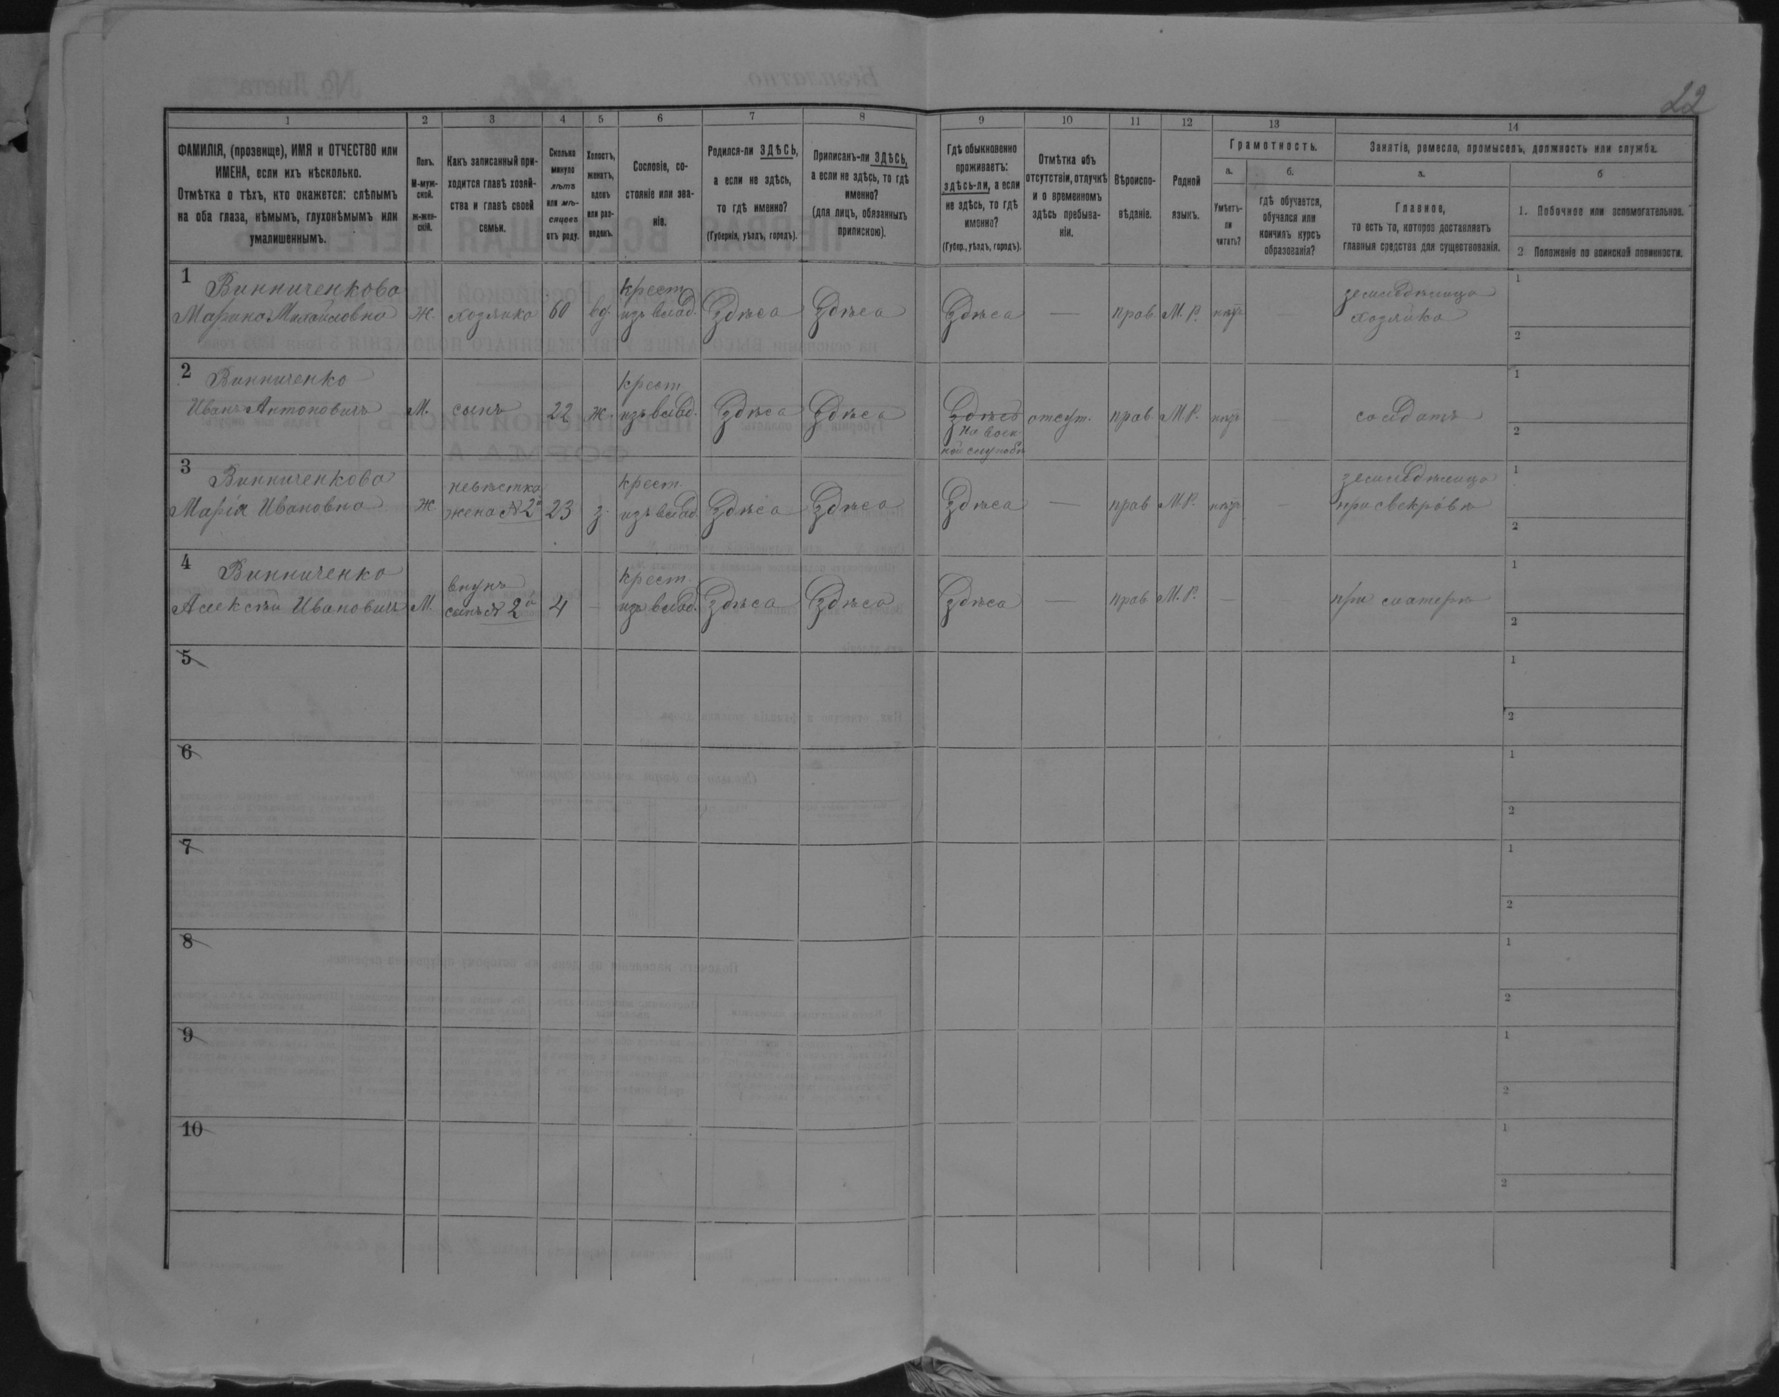 22
1 2 3 4 5 6 7 8 9 10 11 12 13 14
ФАМИЛІЯ, (прозвище), ИМЯ и ОТЧЕСТВО или
ИМЕНА, если ихъ нѣсколько.
Отмѣтка о тѣхъ, кто окажется: слѣпымъ
на оба глаза, нѣмымъ, глухонѣмымъ или
умалишеннымъ.
Полъ.
М-муж-
ской.
ж-жен-
скій.
Какъ записанный при-
ходится главѣ хозяй-
ства и главѣ своей
семьи.
Сколько
минуло
лѣтъ
или мѣ-
сяцевъ
отъ роду.
Холостъ,
женатъ,
вдовъ
или раз-
веденъ.
Сословіе, со-
стояніе или зва-
ніе.
Родился-ли ЗДѢСЬ,
а если не здѣсь,
то гдѣ именно?
(Губернія, уѣздъ, городъ).
Приписанъ-ли ЗДѢСЬ,
а если не здѣсь, то гдѣ
именно?
(для лицъ, обязанныхъ
припискою).
Гдѣ обыкновенно
проживаетъ:
здѣсь-ли, а если
не здѣсь, то гдѣ
именно?
(Губер., уѣздъ, городъ).
Отмѣтка объ
отсутствіи, отлучкѣ
и о временномъ
здѣсь пребыва-
ніи.
Вѣроиспо-
вѣданіе.
Родной
языкъ.
Грамотность.
а.
Умѣетъ-
ли
читать?
б.
гдѣ обучается,
обучался или
кончилъ курсъ
образованія?
Занятіе, ремесло, промыселъ, должность или служба.
а.
Главное,
то есть то, которое доставляетъ
главныя средства для существованія.
б
1. Побочное или вспомогательное.
2 Положеніе по воинской повинности.
1 Винниченкова крест земледѣлица 1
Марина Михайловна Ж. хозяйка 60 вд. изъ влад. Здѣсь Здѣсь Здѣсь — прав М.Р. — хозяйка
2
2 Винниченко крест 1
Иванъ Антоновичъ М. сынъ 22 ж. изъ влад. Здѣсь Здѣсь Здѣсь отсут. прав М.Р. — солдатъ
на воен
ной службѣ
2
3 Винниченкова невѣстка крест земледѣлица 1
Марія Ивановна Ж жена №2го 23 з. изъ влад Здѣсь Здѣсь Здѣсь — прав М.Р. — при свекрови
2
4 Винниченко внукъ крест 1
Алексѣй Ивановичъ М. сынъ № 2го 4 — изъ влад. Здѣсь Здѣсь Здѣсь — прав М.Р. — при матери
2
5 1
2
6 1
2
7 1
2
8 1
2
9 1
2
10 1
2